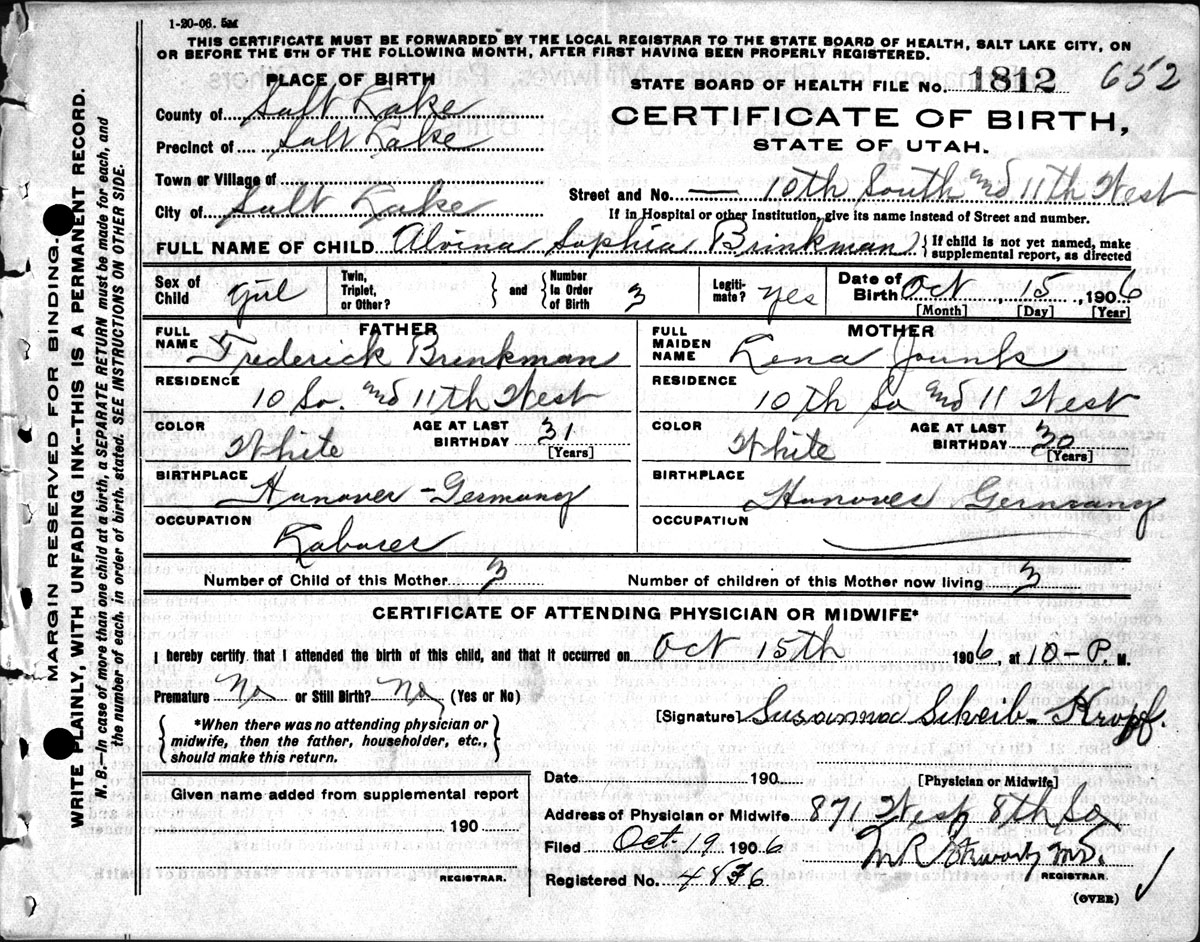 1-20-06. 5M
THIS CERTIFICATE MUST BE FORWARDED BY THE LOCAL REGISTRAR TO THE STATE BOARD OF HEALTH, SALT LAKE CITY, ON
OR BEFORE THE 5TH OF THE FOLLOWING MONTH, AFTER FIRST HAVING BEEN PROPERLY REGISTERED.
PLACE OF BIRTH
STATE BOARD OF HEALTH FILE No. 1812 652
County of Salt Lake
CERTIFICATE OF BIRTH,
Precinct of Salt Lake
STATE OF UTAH.
Town or Village of
Street and No. — 10th South and 11th West
City of Salt Lake
If in Hospital or other Institution, give its name instead of Street and number.
FULL NAME OF CHILD Alvina Sophia Brinkman { If child is not yet named, make
supplemental report, as directed
Sex of Child Girl
Twin, Triplet, or Other? } and { Number In Order of Birth 3
Legitimate? Yes
Date of Birth Oct, 15, 1906
[Month] [Day] [Year]
FATHER
FULL NAME Frederick Brinkman
RESIDENCE
10 So. and 11th West
COLOR White AGE AT LAST BIRTHDAY 31 [Years]
BIRTHPLACE
Hanover - Germany
OCCUPATION
Laborer
MOTHER
FULL MAIDEN NAME Lena
RESIDENCE
10th So and 11 West
COLOR White AGE AT LAST BIRTHDAY 30 [Years]
BIRTHPLACE
Hanover Germany
OCCUPATION
Number of Child of this Mother 3 Number of children of this Mother now living 3
CERTIFICATE OF ATTENDING PHYSICIAN OR MIDWIFE*
I hereby certify that I attended the birth of this child, and that it occurred on Oct 15th 1906, at 10-P. M.
Premature No or Still Birth? No (Yes or No)
[Signature] Susanna Scheib-Kropf.
{ *When there was no attending physician or
midwife, then the father, householder, etc.,
should make this return. }
Date 190
[Physician or Midwife]
Given name added from supplemental report
190
REGISTRAR.
Address of Physician or Midwife 871 West 8th So
Filed Oct. 19 1906 M.D.
REGISTRAR.
Registered No.
(OVER)
MARGIN RESERVED FOR BINDING.
WRITE PLAINLY, WITH UNFADING INK--THIS IS A PERMANENT RECORD.
N. B.—In case of more than one child at a birth, a SEPARATE RETURN must be made for each, and
the number of each, in order of birth, stated. SEE INSTRUCTIONS ON OTHER SIDE.